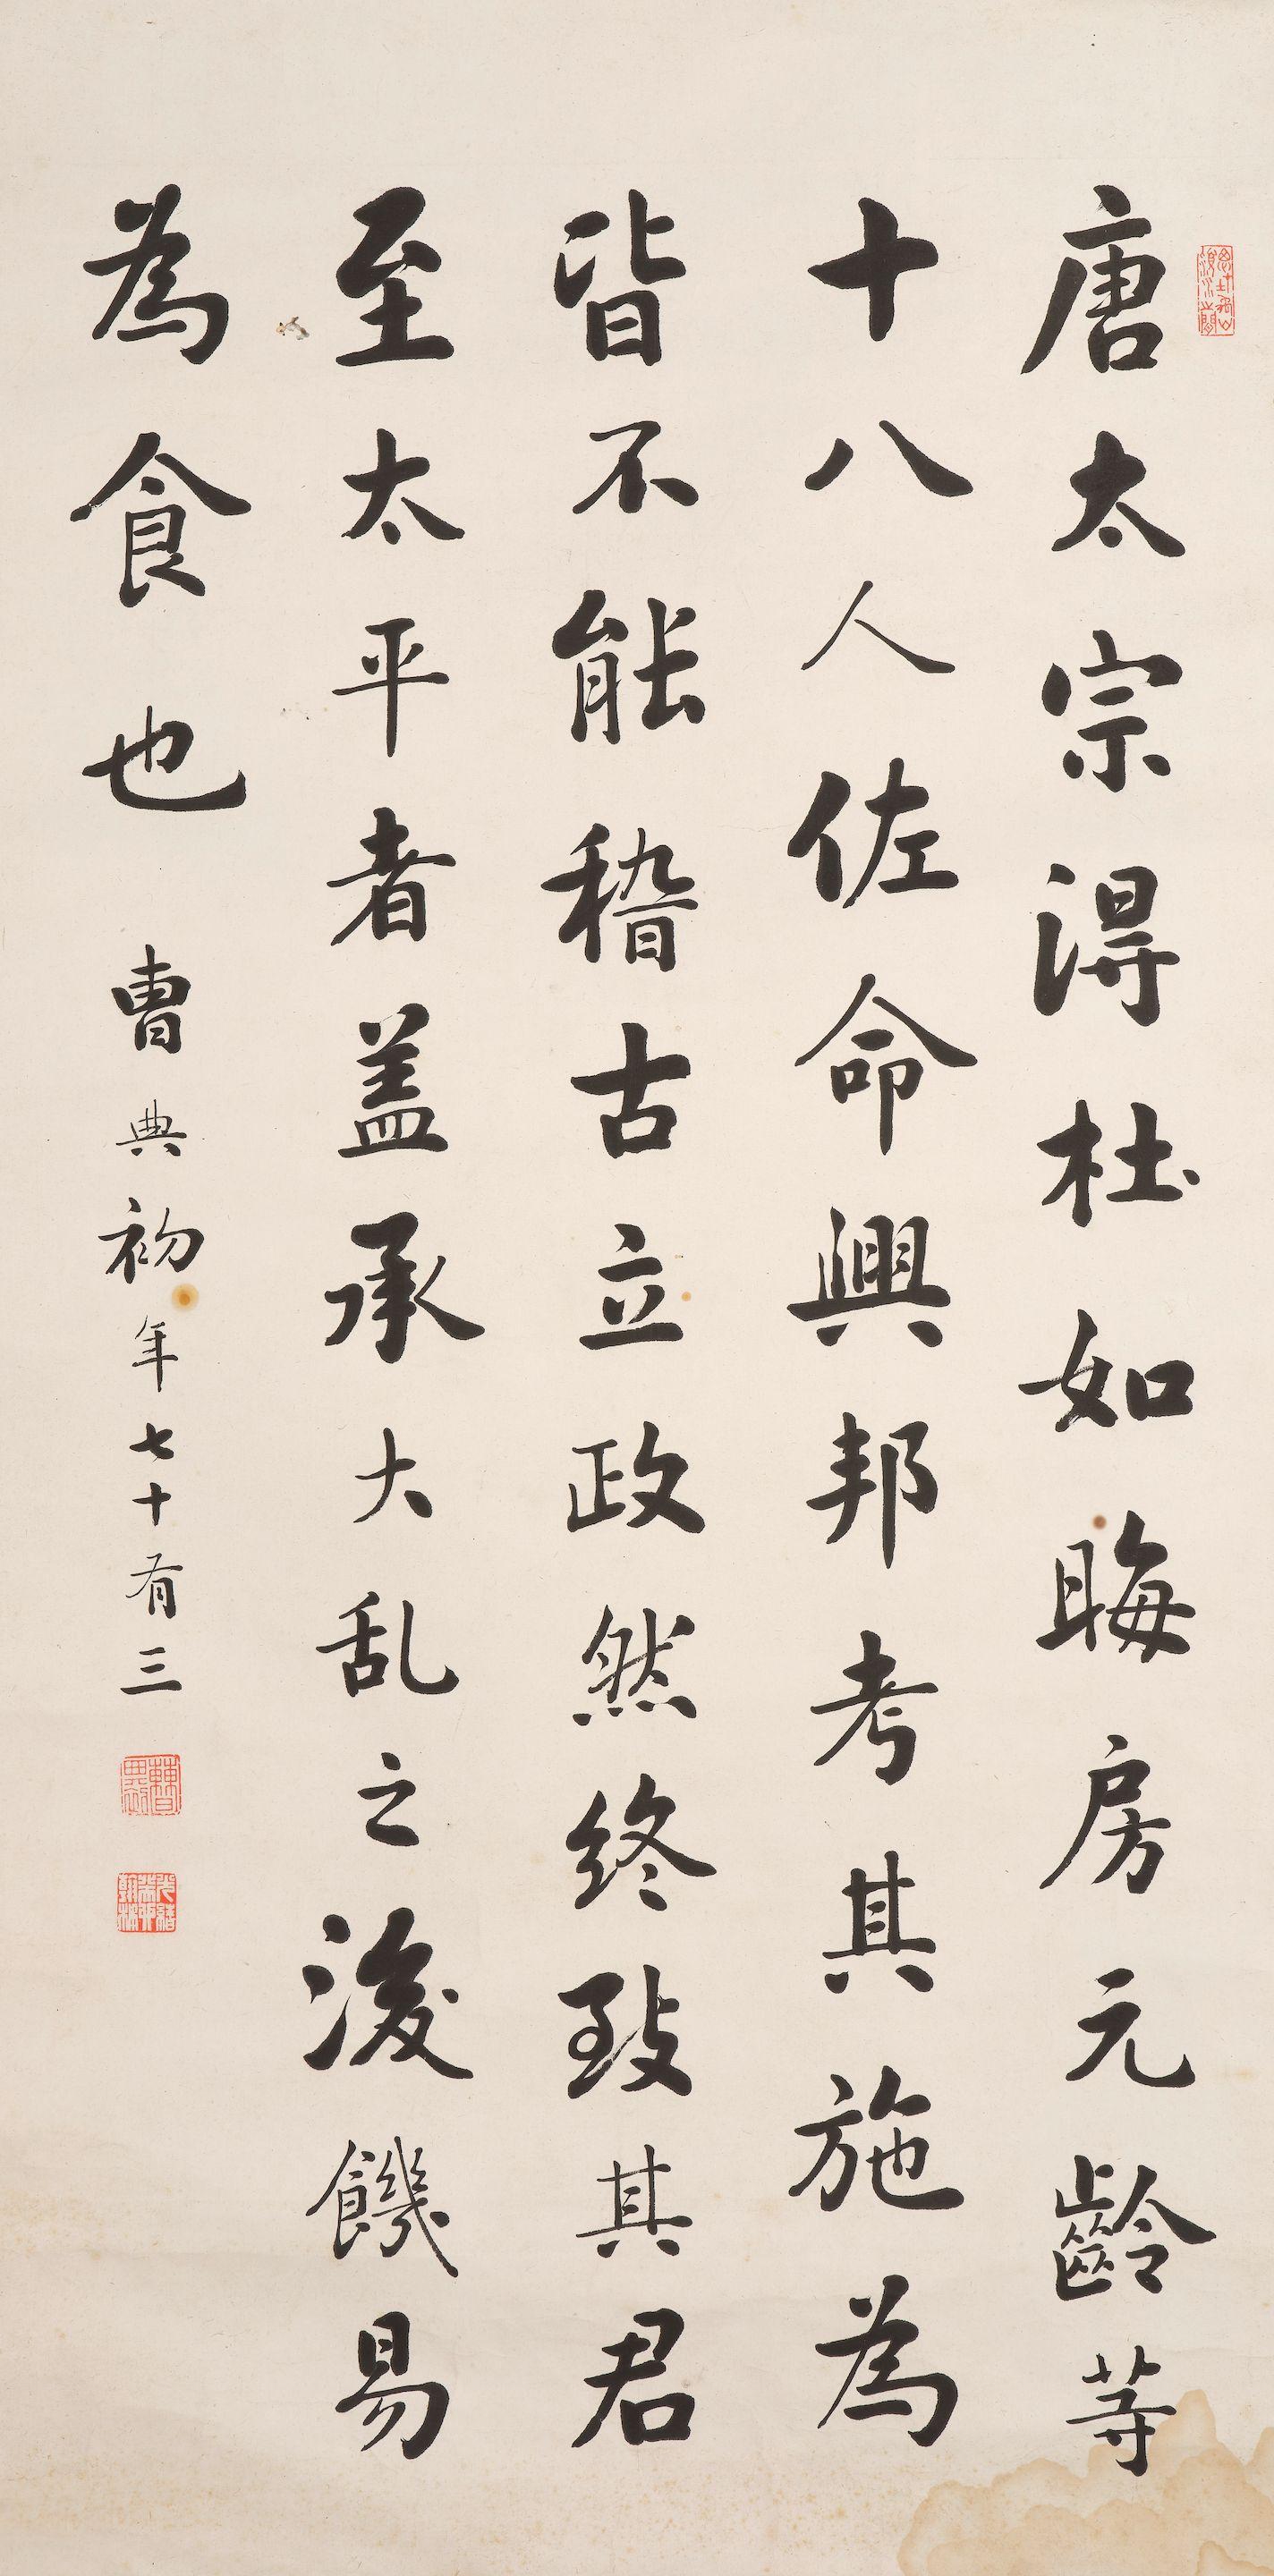 唐太宗得杜如晦房元齡等
十八人佐命興邦考其施為
皆不能稽古立政然終致其君
至太平者蓋承大乱之後饑易
為食也 曹典初年七十有三
曹典初